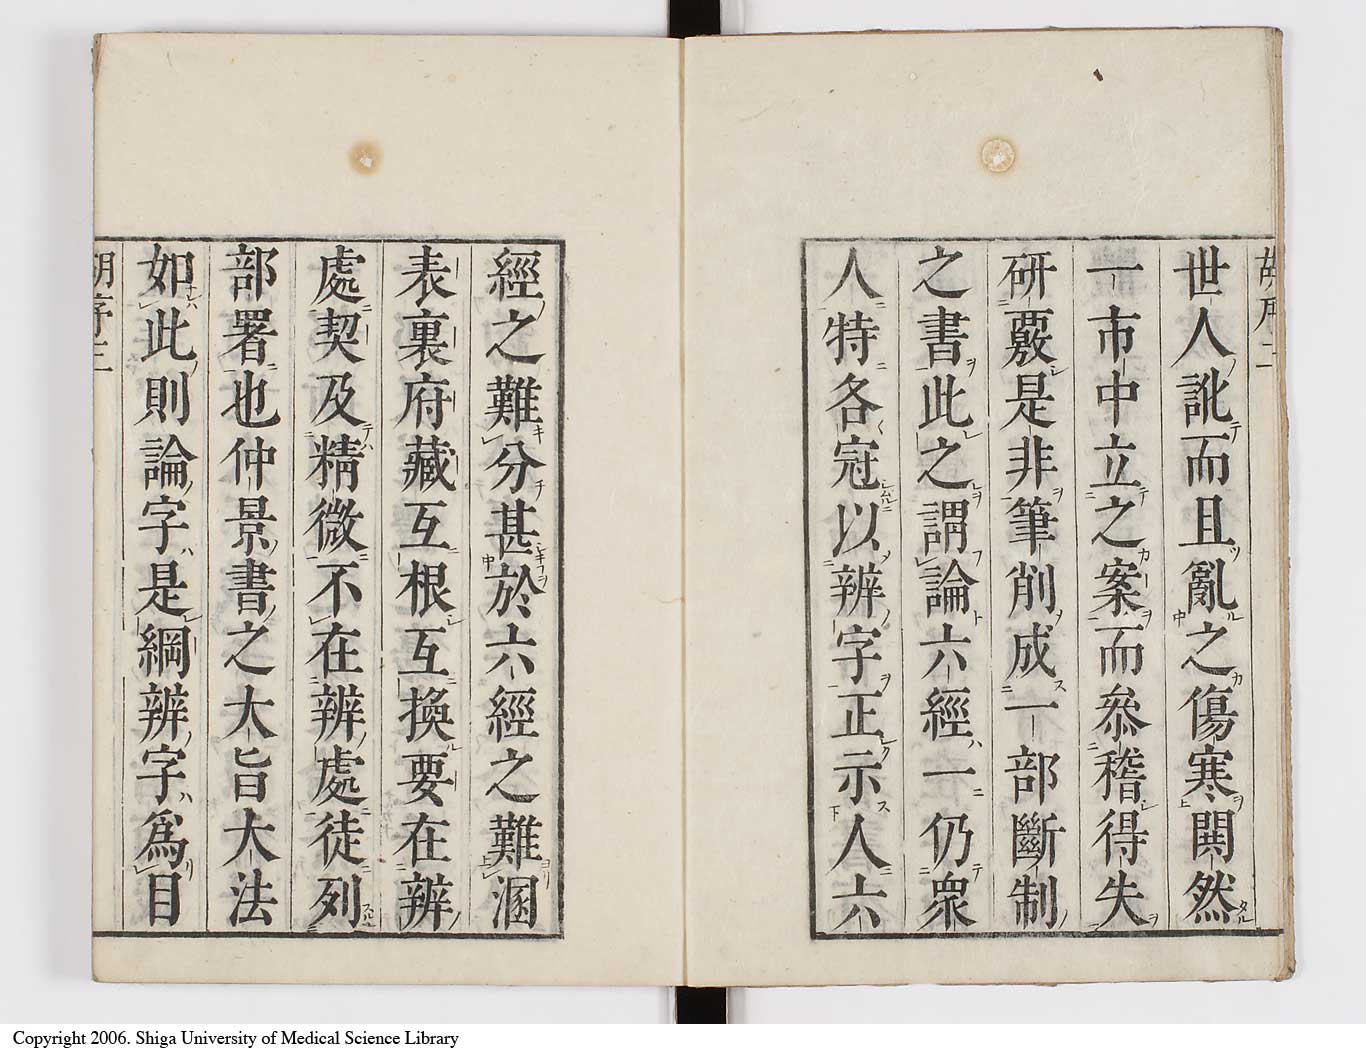 胡序二
世人訛而且亂之傷寒閧然
一市中立之案而叅稽得失
研覈是非筆削成一部斷制
之書此之謂論六經一仍衆
人特各冠以辨字正示人六
經之難分甚於六經之難溷
表裏府藏互根互換要在辨
處契及精微不在辨處徒列
部署也仲景書之大旨大法
如此則論字是綱辨字爲目
胡序三
Copyright 2006. Shiga University of Medical Science Library